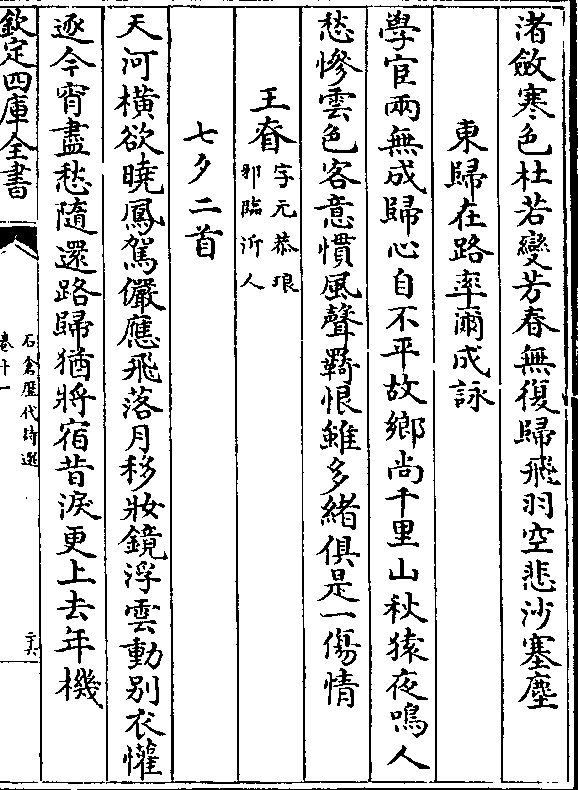 渚斂寒色杜若變芳春無復歸飛羽空悲沙塞塵
東歸在路率爾成詠
學宦兩無成歸心自不平故鄉尚千里山秋猿夜鳴人
愁慘雲色客意慣風聲羇恨雖多緒俱是一傷情
王昚字元恭琅
邪臨沂人
七夕二首
天河橫欲曉鳳駕儼應飛落月移妝鏡浮雲動别衣懽
逐今宵盡愁隨還路歸猶將宿昔淚更上去年機
欽定四庫全書
石倉歷代詩選
卷十一
二六